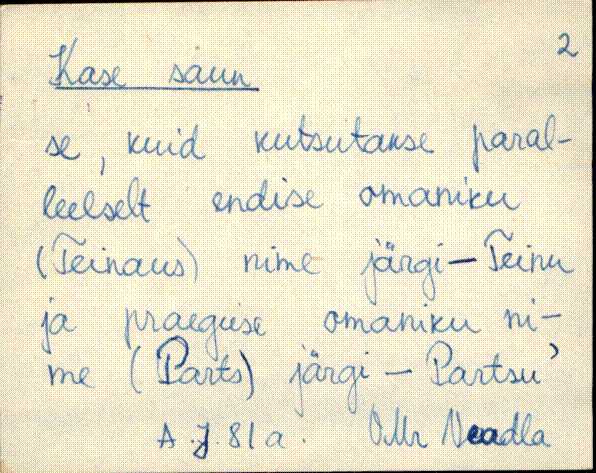 2
Kase saun
se, kuid kutsutakse paral-
leelselt endise omaniku
(Teinaus) nime järgi – Teinu
ja praeguse omaniku ni-
me (Parts) järgi – Partsu'
A.J. 81a.